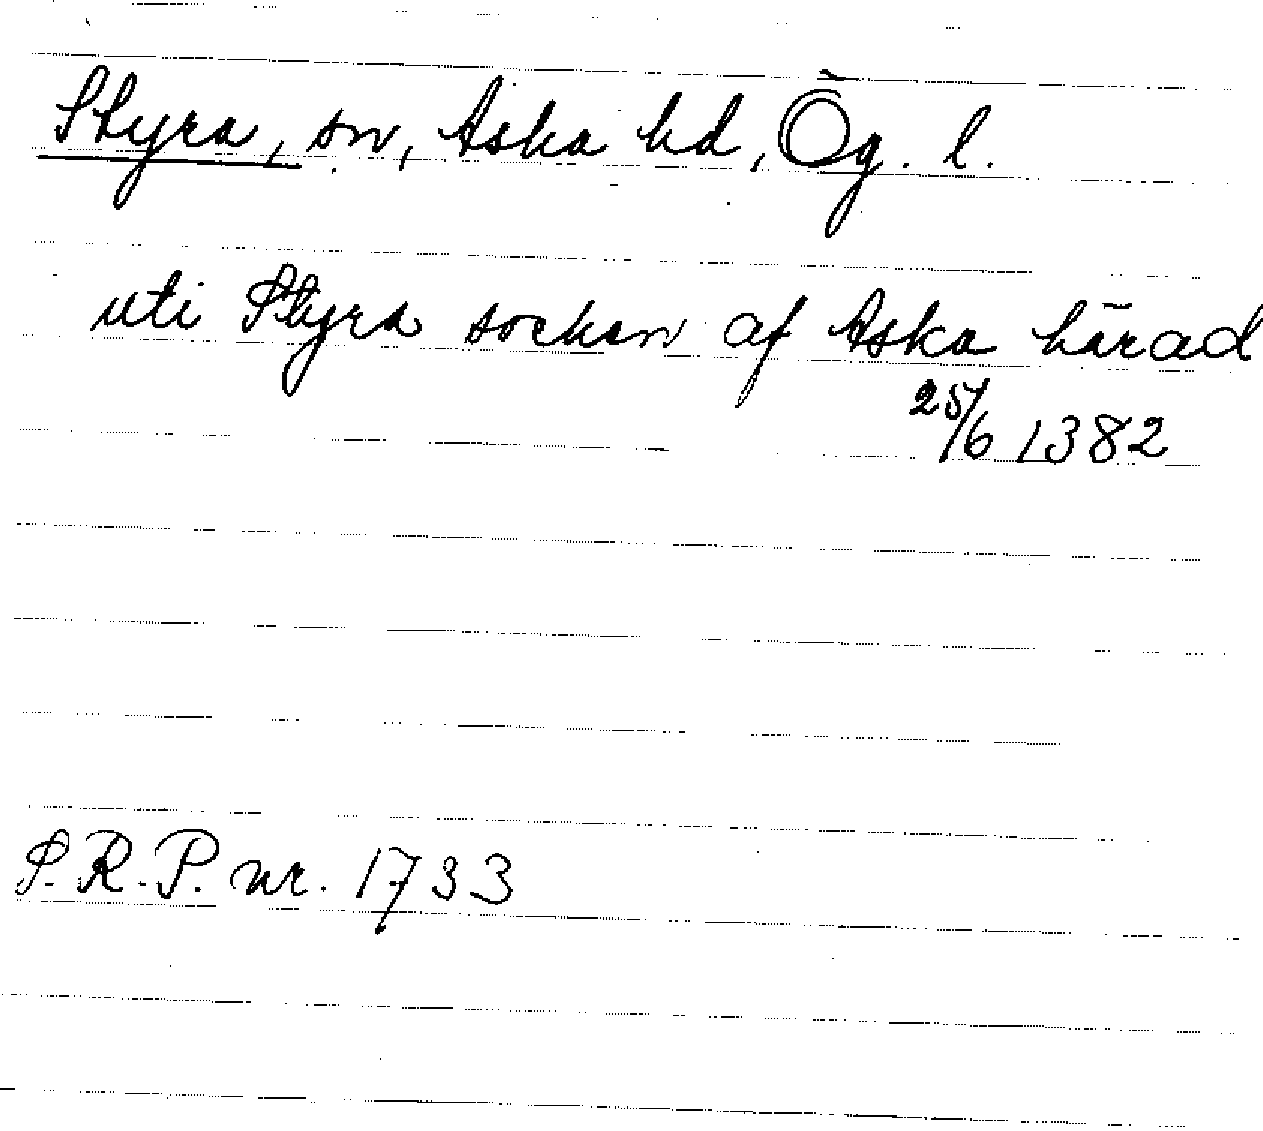 Styra, sn, Aska hd, Ög. l.
uti Styra sockan af Aska härad
25/6 1382
S.R.P. nr. 1733